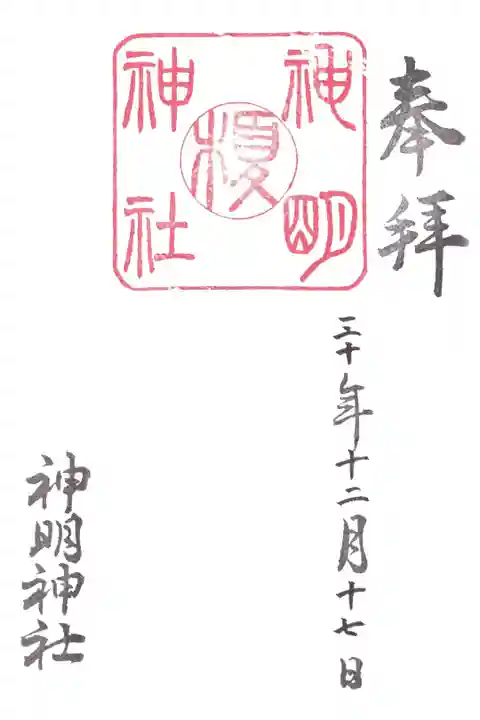 奉拝
三十年十二月十七日
神明
神社
榎
神明神社